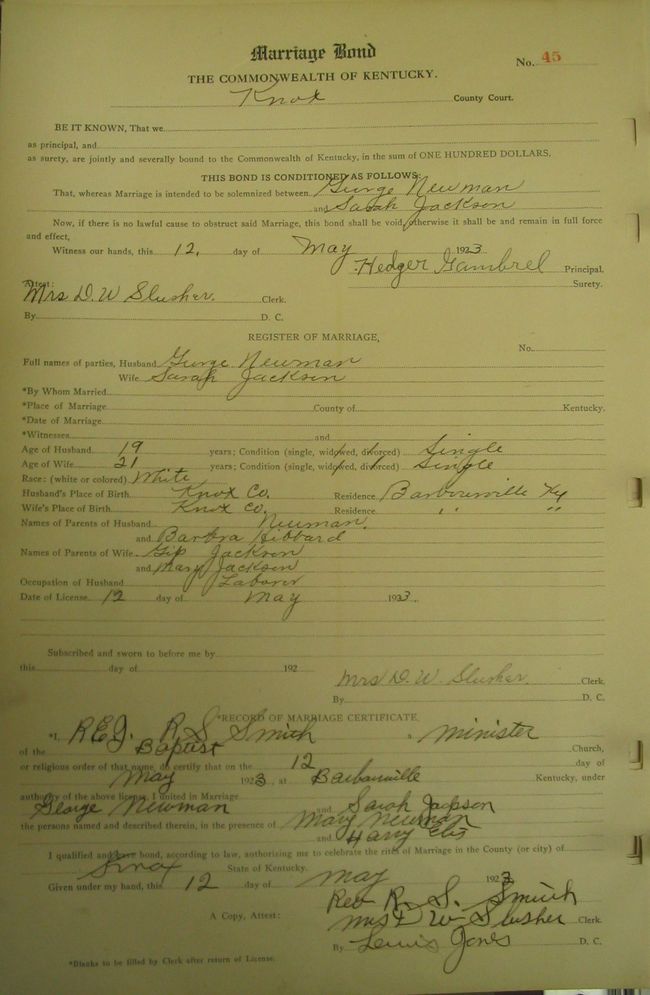 Marriage Bond
No. 45
THE COMMONWEALTH OF KENTUCKY.
Knox County Court.
BE IT KNOWN, That we
as principal, and
as surety, are jointly and severally bound to the Commonwealth of Kentucky, in the sum of ONE HUNDRED DOLLARS.
THIS BOND IS CONDITIONED AS FOLLOWS:
That, whereas Marriage is intended to be solemnized between George Newman
and Sarah Jackson
Now, if there is no lawful cause to obstruct said Marriage, this bond shall be void, otherwise it shall be and remain in full force
and effect,
Witness our hands, this 12, day of May 1923
Hedger Gambrel Principal.
Surety.
Attest:
Mrs D. W Slusher. Clerk.
By D. C.
REGISTER OF MARRIAGE,
No.
Full names of parties, Husband George Newman
Wife Sarah Jackson
*By Whom Married
*Place of Marriage County of Kentucky.
*Date of Marriage
*Witnesses and
Age of Husband 19 years; Condition (single, widowed, divorced) Single
Age of Wife 21 years; Condition (single, widowed, divorced) Single
Race: (white or colored) White
Husband's Place of Birth Knox Co. Residence Barbourville Ky
Wife's Place of Birth Knox Co. Residence " "
Names of Parents of Husband Newman.
and Barbra Hibbard
Names of Parents of Wife Gip Jackson
and Mary Jackson
Occupation of Husband Laborer
Date of License 12 day of May 1923
Subscribed and sworn to before me by
this day of 192
Mrs D. W. Slusher. Clerk.
By D. C.
*RECORD OF MARRIAGE CERTIFICATE.
*I, R. S Smith a minister
of the Baptist Church,
or religious order of that name, do certify that on the 12 day of
May 1923, at Barbourville Kentucky, under
authority of the above license, I united in Marriage
George Newman and Sarah Jackson
the persons named and described therein, in the presence of Mary Newman
and Harry
I qualified and gave bond, according to law, authorizing me to celebrate the rites of Marriage in the County (or city) of
Knox State of Kentucky.
Given under my hand, this 12 day of May 1923
Rev R. S. Smith
A Copy, Attest: Mrs D W Slusher Clerk.
By Lewis Jones D. C.
*Blanks to be filled by Clerk after return of License.